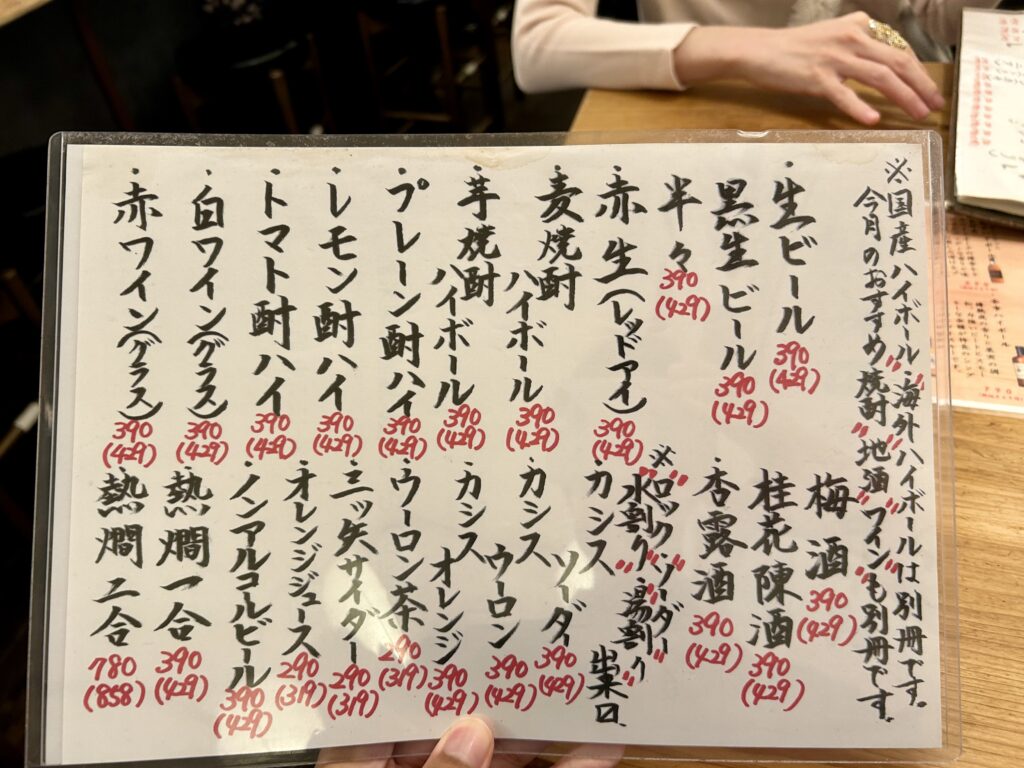 ※国産ハイボール”海外ハイボールは別冊です。
今月のおすすめ”焼酎”地酒”ワイン”も別冊です。
・生ビール 390 (429)
黒生ビール 390 (429)
半々 390 (429)
・赤生(レッドアイ) 390 (429)
・麦焼酎ハイボール 390 (429)
・芋焼酎ハイボール 390 (429)
・プレーン酎ハイ 390 (429)
・レモン酎ハイ 390 (429)
・トマト酎ハイ 390 (429)
・白ワイン(グラス) 390 (429)
・赤ワイン(グラス) 390 (429)
・梅酒 390 (429)
桂花陳酒 390 (429)
・杏露酒 390 (429)
※”ロック”ソーダー”
水割り”湯割り”出来ロ
・カシス
・カシスソーダ 390 (429)
・カシスウーロン 390 (429)
カシスオレンジ 390 (429)
・ウーロン茶 290 (319)
・三ッ矢サイダー 290 (319)
・オレンジジュース 290 (319)
・ノンアルコールビール 390 (429)
・熱燗一合 390 (429)
・熱燗二合 780 (858)